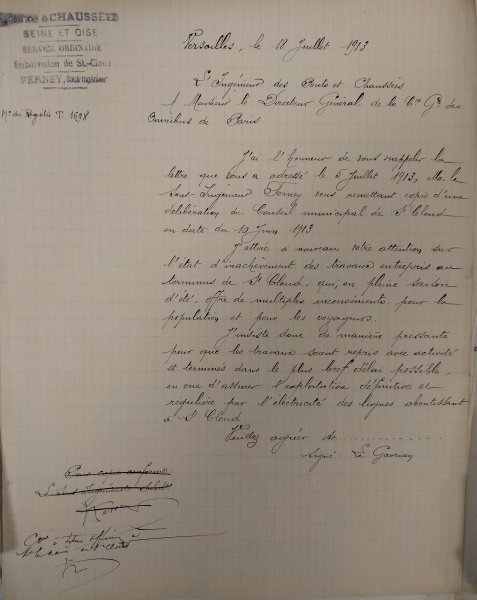 PONTS & CHAUSSÉES
SEINE ET OISE
SERVICE ORDINAIRE
Subdivision de St-Cloud
FERNEY, Sous-Ingénieur
N° du Registre T. 1698
Versailles, le 18 Juillet 1913
L'Ingénieur des Ponts et Chaussées
A Monsieur le Directeur Général de la Cie Gle des
Omnibus de Paris.
J'ai l'honneur de vous rappeler la
lettre que vous a adressé le 5 Juillet 1913, M. le
Sous-Ingénieur Ferney vous remettant copie d'une
délibération du Conseil municipal de St Cloud
en date du 19 Juin 1913
J'attire à nouveau votre attention sur
l'état d'inachèvement des travaux entrepris au
terminus de St Cloud, qui, en pleine saison
d'été, offre de multiples inconvénients pour la
population et pour les voyageurs.
J'insiste donc de manière pressante
pour que les travaux soient repris avec activité
et terminés dans le plus bref délai possible,
en vue d'assurer l'exploitation définitive et
régulière par l'électricité des lignes aboutissant
à St Cloud.
Veuillez agréer de..................
Signé: Le Gavrian
Pour copie conforme:
Le Sous-Ingénieur
à titre officieux à